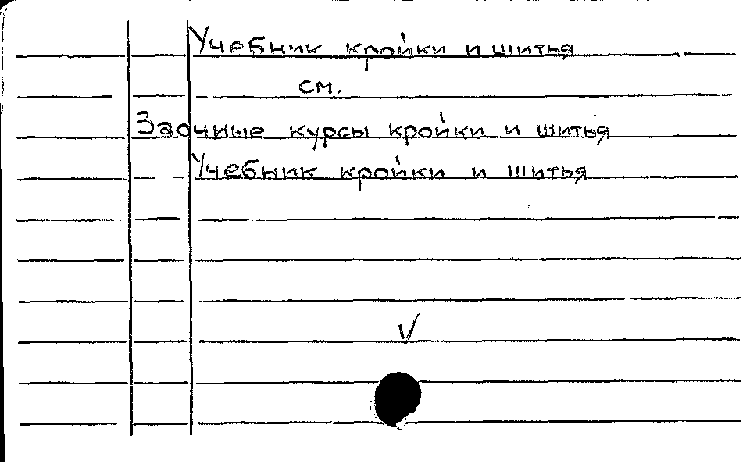 Учебник кройки и шитья
см.
Заочные курсы кройки и шитья
Учебник кройки и шитья